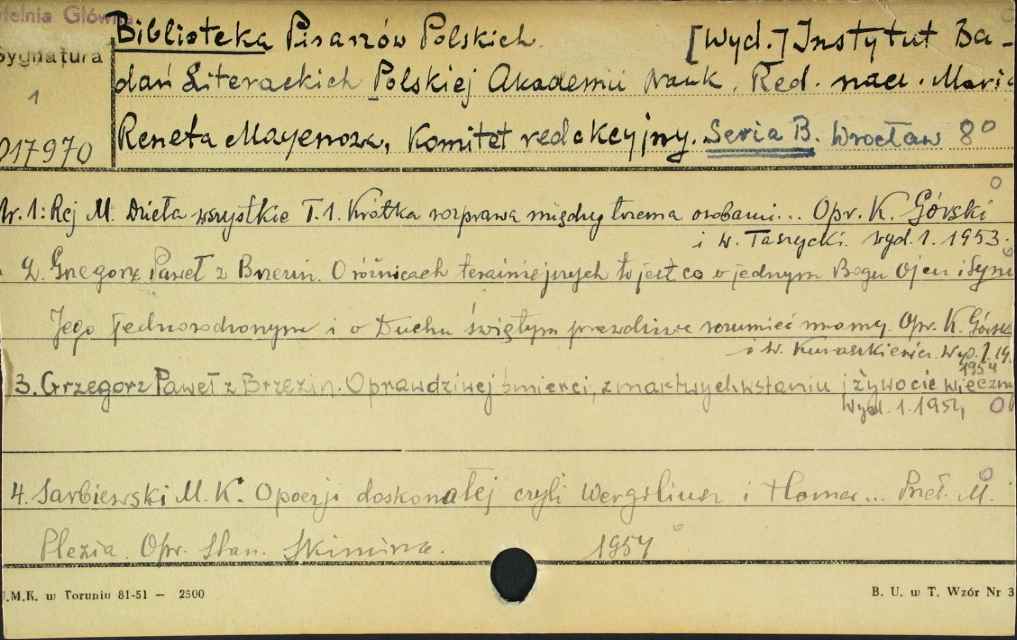 Biblioteka Pisarzów Polskich. [Wyd.] Instytut Ba-
Sygnatura
dań Literackich Polskiej Akademii Nauk. Red. nacz. Maria
1
Reneta Mayenowa, Komitet redakcyjny. Seria B. Wrocław 8°
017970
Nr. 1: Rej M. Dzieła wszystkie T. 1. Krótka rozprawa między trzema osobami... Opr. K. Górski
i W. Taszycki. Wyd. 1. 1953.
2. Grzegorz Paweł z Brzezin. O różnicach teraźniejszych to jest co o jednym Bogu Ojcu i Synu
Jego Jednorodzonym i o Duchu świętym prawdziwie rozumieć mamy. Opr. K. Górski
i W. Kuraszkiewicz. Wyd. 1. 19
1954
3. Grzegorz Paweł z Brzezin. O prawdziwej śmierci, zmartwychwstaniu i żywocie wieczn
Wyd. 1. 1954
4. Sarbiewski M. K. O poezji doskonałej czyli Wergiliusz i Homer... Przeł. M.
Plezia. Opr. Stan. Skimina. 1954
U.M.K. w Toruniu 81-51 — 2500
B. U. w T. Wzór Nr 3